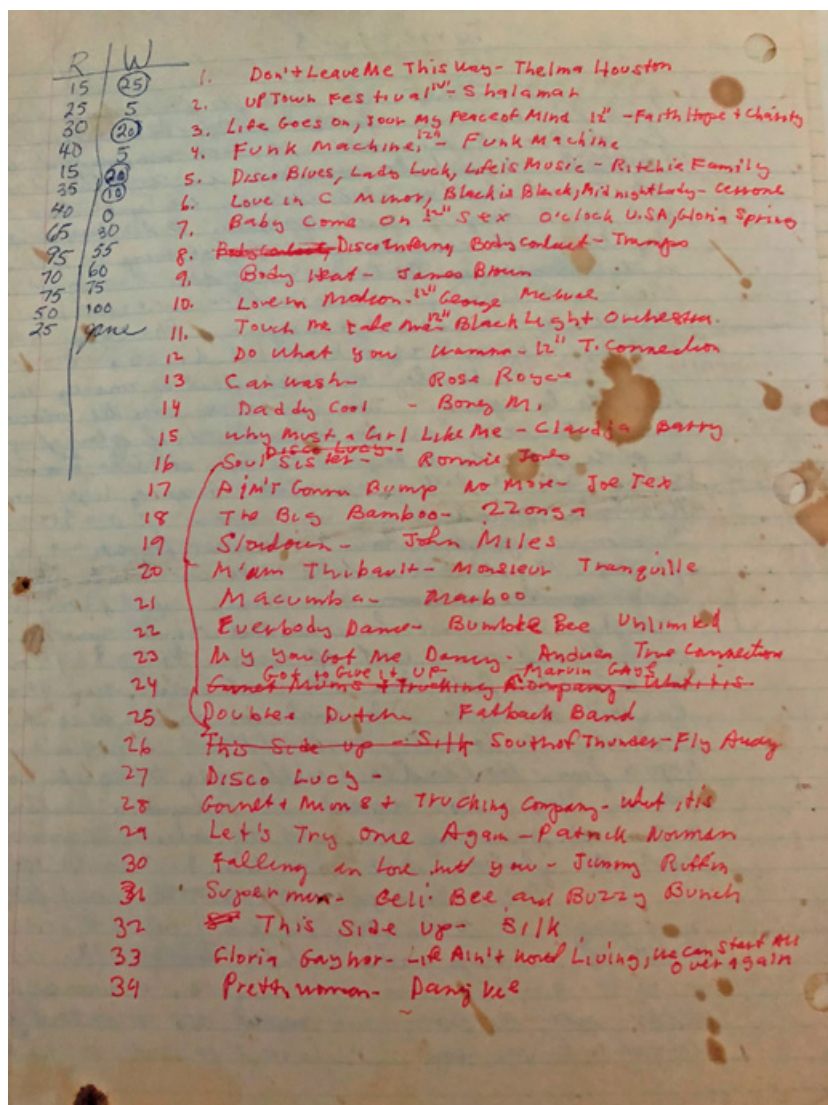 R W
15 25
25 5
30 20
40 5
15 20
35 10
40 0
65 30
95 55
70 60
75 75
50 100
25 game
1. Don't Leave Me This Way - Thelma Houston
2. UPTown Festival 12" - Shalamar
3. Life Goes on, Your My Peace of Mind 12" - Faith Hope + Charity
4. Funk Machine, 12" - Funk Machine
5. Disco Blues, Lady Luck, Life is Music - Ritchie Family
6. Love in C Minor, Black is Black, Midnight Lady - Cerrone
7. Baby Come On 12" Sex O'clock U.S.A, Gloria Spring
8. Body Contact, Disco Inferno, Body Contact - Tramps
9. Body Heat - James Brown
10. Love in Motion - 12" George McCrae
11. Touch Me take me 12" Black Light Orchestra
12 Do What you Wanna - 12" T. Connection
13 Car Wash - Rose Royce
14 Daddy Cool - Boney M.
15 Why Must a Girl Like Me - Claudja Barry
Disco Lucy -
16 Soul Sister - Ronnie Jones
17 Ain't Gonna Bump No More - Joe Tex
18 The Big Bamboo - ZZonga
19 Slowdown - John Miles
20 M'am Thibault - Monsieur Tranquille
21 Macumba - Marboo
22 Everbody Dance - Bumble Bee Unlimited
23 My You Got Me Dancing - Andrea True Connection
Got to Give it UP - Marvin Gaye
24 Garnet Mims + Trucking Company - What it is
25 Double Dutch Fatback Band
26 This Side up - Silk South of Thunder - Fly Away
27 Disco Lucy -
28 Garnet + Mims + Truching Company - What it is
29 Let's Try once Again - Patrick Norman
30 Falling in love with you - Jimmy Ruffin
31 Superman - Celi Bee and Buzzy Bunch
32 This Side up - Silk
33 Gloria Gaynor - Life Ain't Worth Living, We Can Start All
Over again
34 Pretty woman -